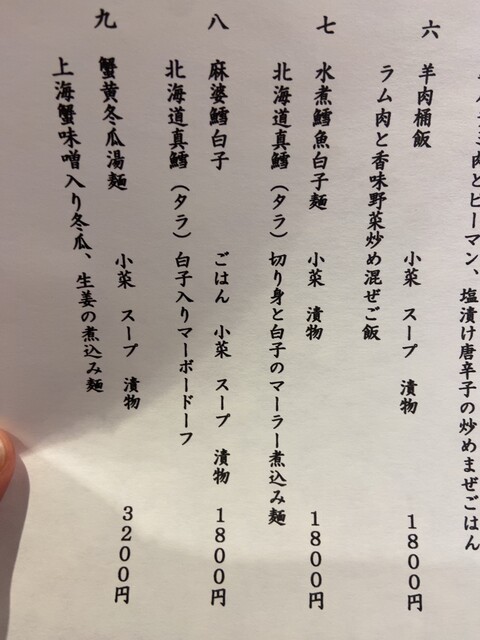 肉とピーマン、塩漬け唐辛子の炒めまぜごはん
六
羊肉桶飯 小菜 スープ 漬物 1800円
ラム肉と香味野菜炒め混ぜご飯
七
水煮鱈魚白子麺 小菜 漬物 1800円
北海道真鱈（タラ）切り身と白子のマーラー煮込み麺
八
麻婆鱈白子 ごはん 小菜 スープ 漬物 1800円
北海道真鱈（タラ）白子入りマーボードーフ
九
蟹黄冬瓜湯麺 小菜 スープ 漬物 3200円
上海蟹味噌入り冬瓜、生姜の煮込み麺